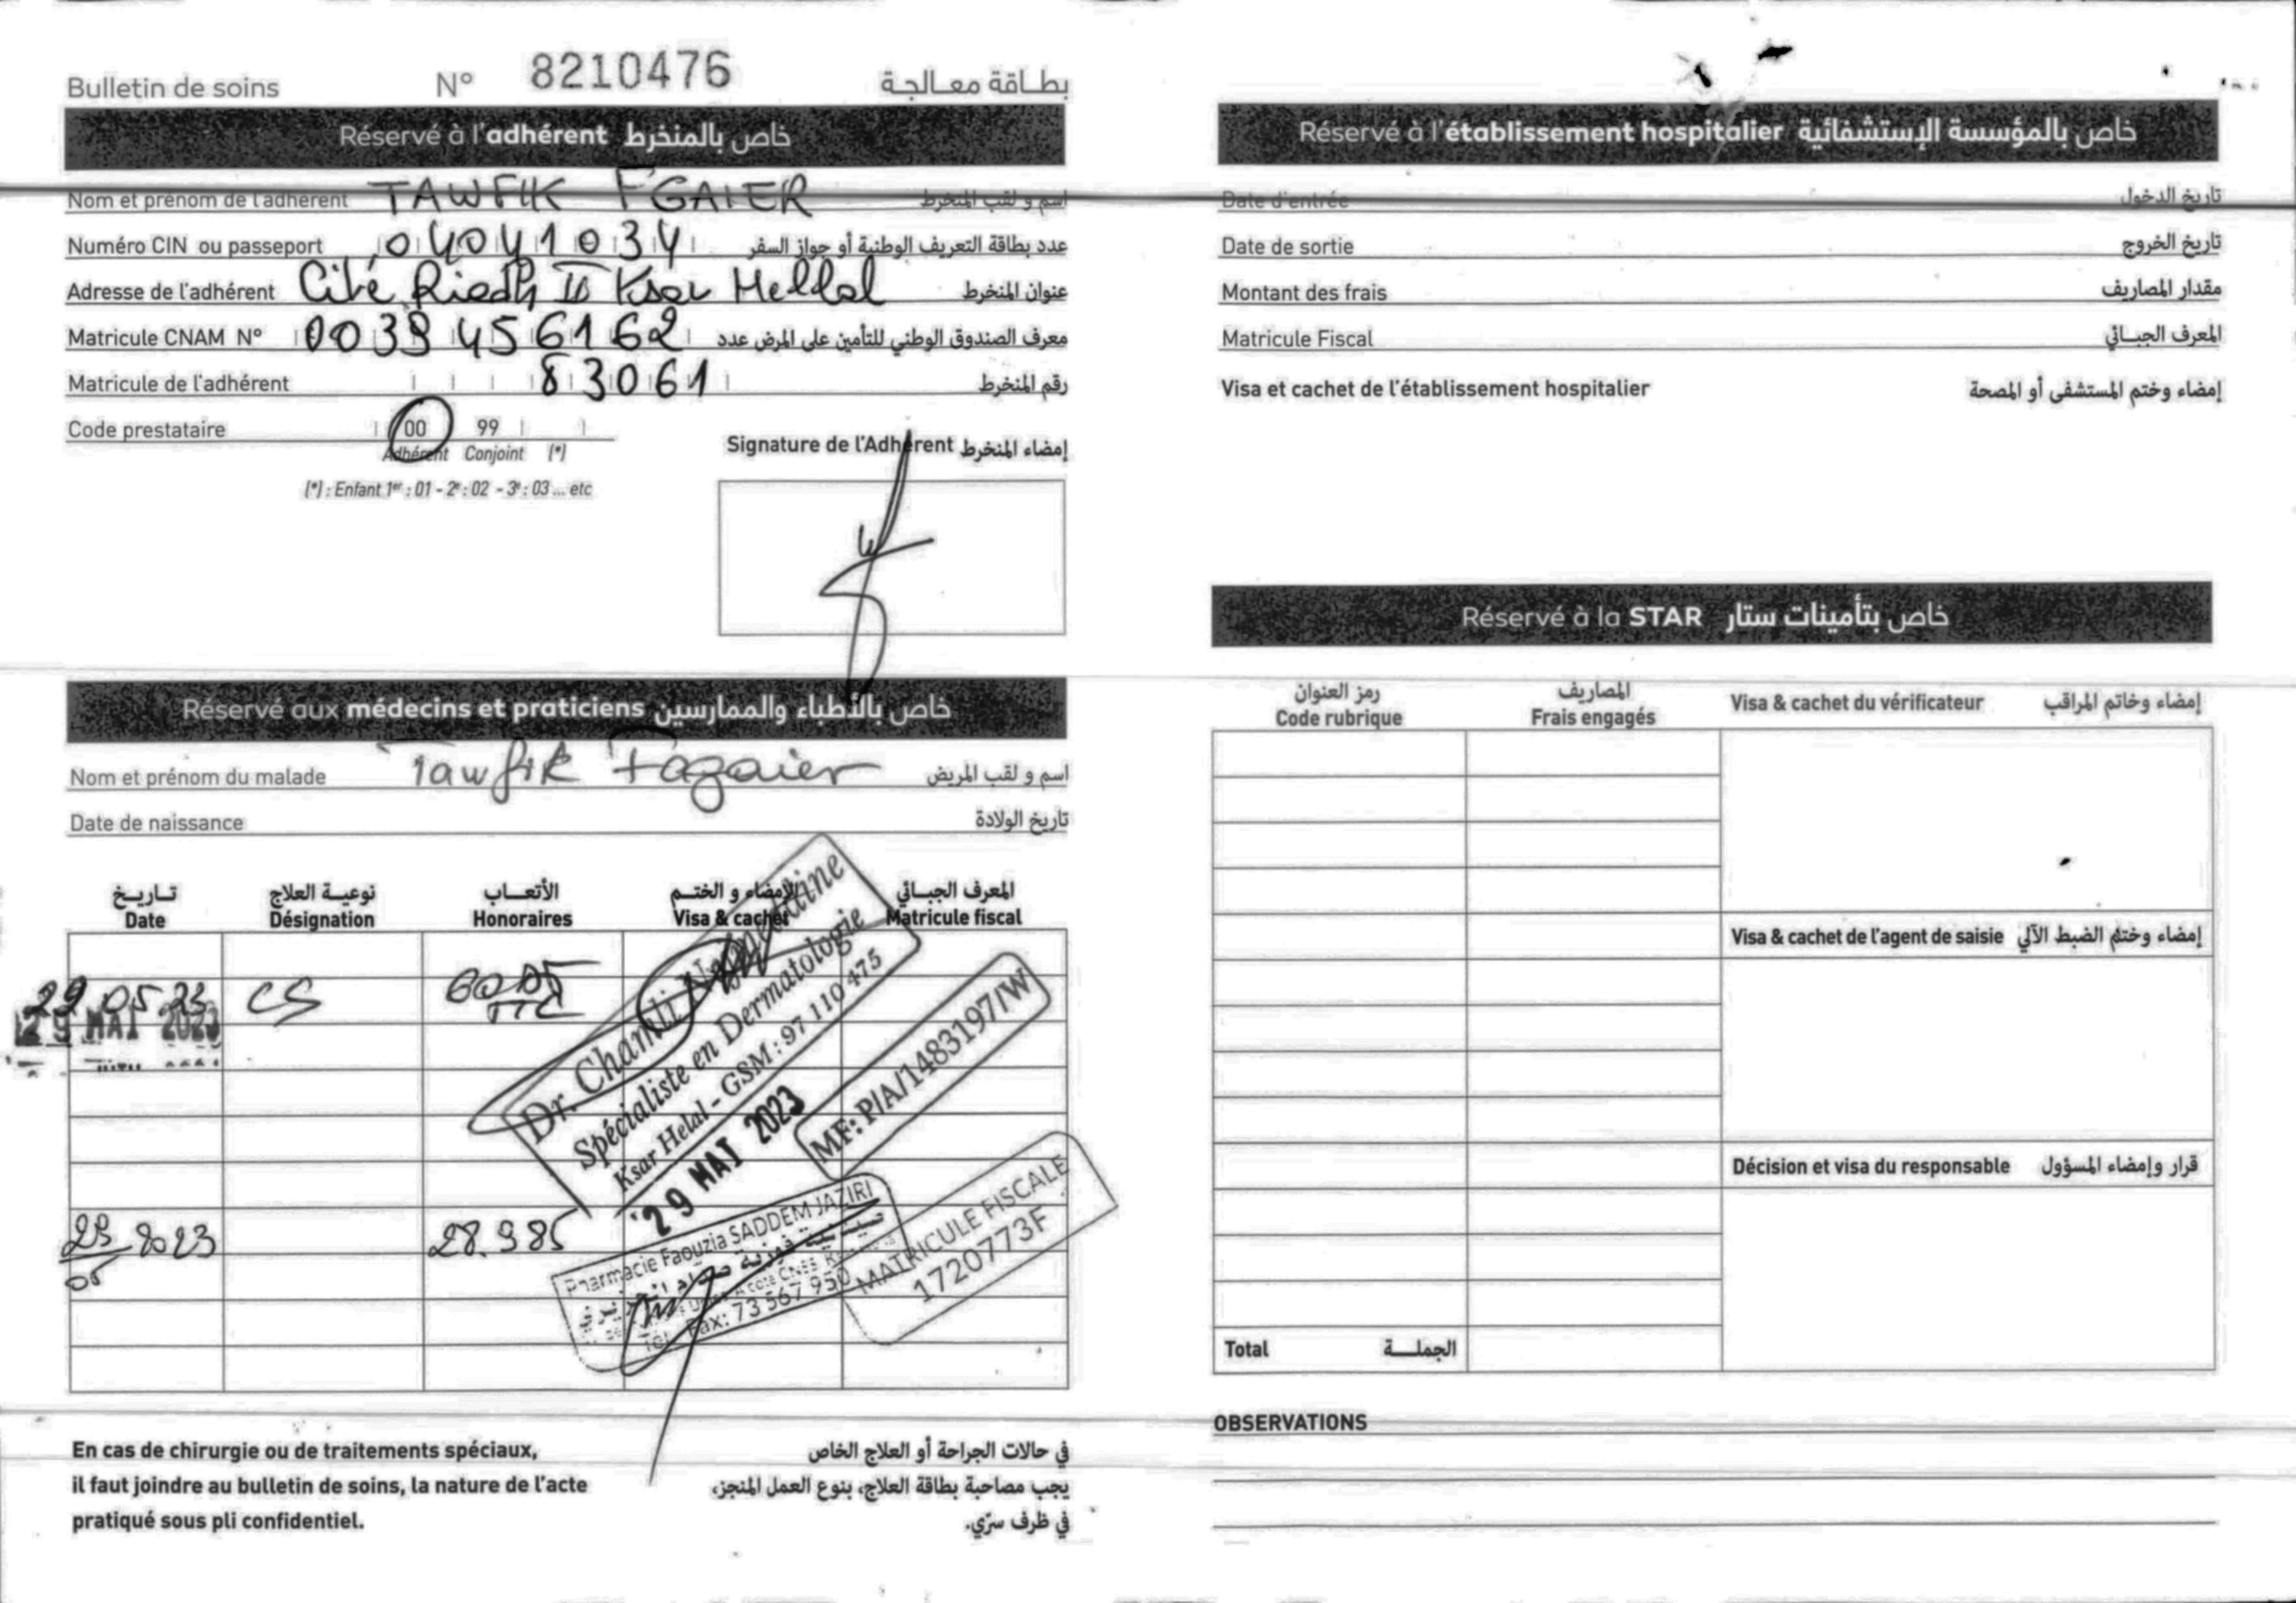 Bulletin de soins N° 8210476 بطاقة معالجة
Réservé à l'adhérent خاص بالمنخرط
Nom et prénom de l'adhérent TAWFIK FGAIER اسم و لقب المنخرط
Numéro CIN ou passeport 04041034 عدد بطاقة التعريف الوطنية أو جواز السفر
Adresse de l'adhérent Cité Riadh II Ksar Hellal عنوان المنخرط
Matricule CNAM N° 0039456162 معرف الصندوق الوطني للتأمين على المرض عدد
Matricule de l'adhérent 83061 رقم المنخرط
Code prestataire 00 99
Adhérent Conjoint (*)
(*) : Enfant 1er : 01 - 2e : 02 - 3e : 03 ... etc
Signature de l'Adhérent إمضاء المنخرط
Réservé aux médecins et praticiens خاص بالأطباء والممارسين
Nom et prénom du malade Tawfik Fagaier اسم و لقب المريض
Date de naissance تاريخ الولادة
تاريخ نوعية العلاج الأتعاب الإمضاء و الختم المعرف الجبائي
Date Désignation Honoraires Visa & cachet Matricule fiscal
29 05 23 CS 60DT
TTC
29 MAI 2023
Dr. Chamli
Spécialiste en Dermatologie
Ksar Helal - GSM : 97 110 475
29 MAI 2023
MF: P/A/1483197/W
29 2023 28.985
05
Pharmacie Faouzia SADDEM JAZIRI
Fax: 73 567 950
MATRICULE FISCALE
1720773F
En cas de chirurgie ou de traitements spéciaux,
il faut joindre au bulletin de soins, la nature de l'acte
pratiqué sous pli confidentiel.
في حالات الجراحة أو العلاج الخاص
يجب مصاحبة بطاقة العلاج، بنوع العمل المنجز،
في ظرف سرّي.
Réservé à l'établissement hospitalier خاص بالمؤسسة الإستشفائية
Date d'entrée تاريخ الدخول
Date de sortie تاريخ الخروج
Montant des frais مقدار المصاريف
Matricule Fiscal المعرف الجبائي
Visa et cachet de l'établissement hospitalier إمضاء وختم المستشفى أو المصحة
Réservé à la STAR خاص بتأمينات ستار
رمز العنوان المصاريف
Code rubrique Frais engagés
Visa & cachet du vérificateur إمضاء وخاتم المراقب
Visa & cachet de l'agent de saisie إمضاء وختم الضبط الآلي
Décision et visa du responsable قرار وإمضاء المسؤول
Total الجملة
OBSERVATIONS